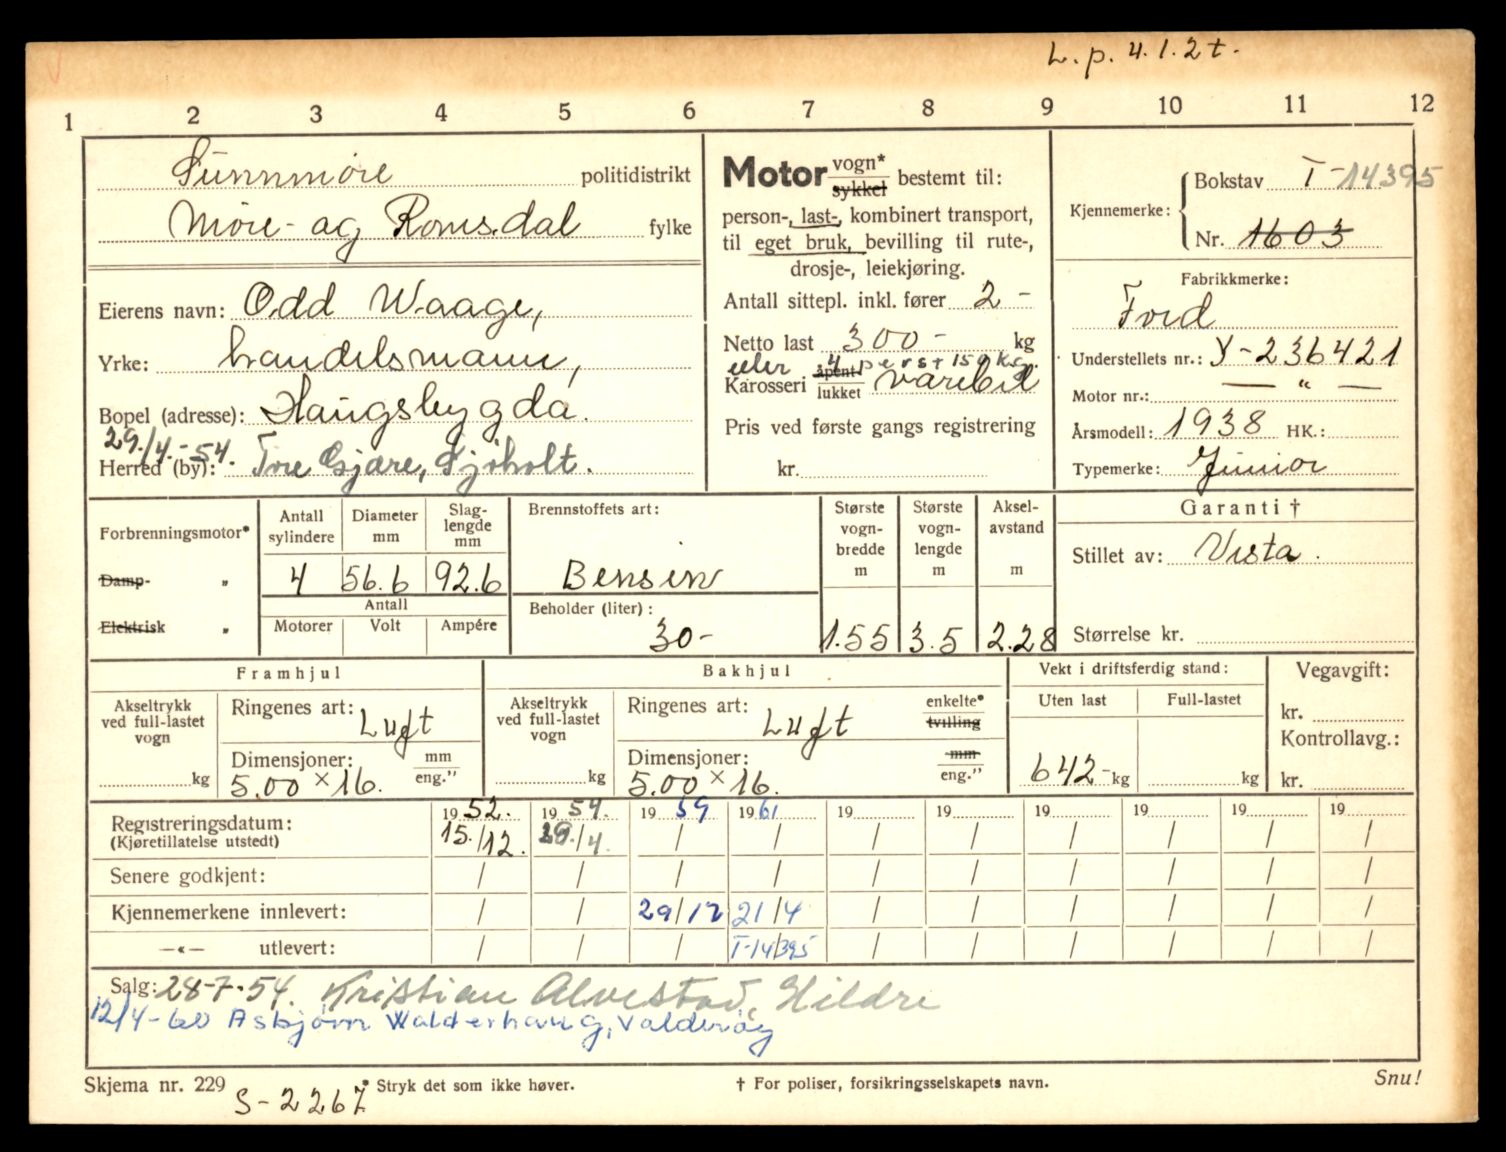 L. p. 4.1.2 t.
1 2 3 4 5 6 7 8 9 10 11 12
Sunnmøre politidistrikt
Møre- og Romsdal fylke
Eierens navn: Odd Waage,
Yrke: handelsmann,
Bopel (adresse): Haugsbygda.
29./4.-54.
Herred (by): Tore Gjære, Sjøholt.
Motor vogn* sykkel bestemt til:
person-, last-, kombinert transport,
til eget bruk, bevilling til rute-,
drosje-, leiekjøring.
Antall sittepl. inkl. fører 2 -
Netto last 300 - kg
eller 4 pers + 150 kg.
Karosseri åpent lukket varebil
Pris ved første gangs registrering
kr.
Kjennemerke: Bokstav T-14395
Nr. 1603
Fabrikkmerke:
Ford
Understellets nr.: Y-236421
Motor nr.: — " —
Årsmodell: 1938 HK.:
Typemerke: Junior
Garanti †
Stillet av: Vesta.
Størrelse kr.
Forbrenningsmotor*
Damp- "
Elektrisk "
Antall sylindere Diameter mm Slaglengde mm
4 56.6 92.6
Antall
Motorer Volt Ampére
Brennstoffets art:
Bensin
Beholder (liter):
30-
Største vognbredde m Største vognlengde m Akselavstand m
1.55 3.5 2.28
Framhjul
Akseltrykk ved full-lastet vogn
kg
Ringenes art: Luft
Dimensjoner: mm eng."
5.00 × 16.
Bakhjul
Akseltrykk ved full-lastet vogn
kg
Ringenes art: Luft enkelte* tvilling
Dimensjoner: mm eng."
5.00 × 16.
Vekt i driftsferdig stand:
Uten last Full-lastet
642- kg kg
Vegavgift:
kr.
Kontrollavg.:
kr.
19 52. 19 54. 19 59 19 61 19 19 19 19 19 19
Registreringsdatum: 15./12. 29./4. / / / / / / / /
(Kjøretillatelse utstedt)
Senere godkjent: / / / / / / / / / /
Kjennemerkene innlevert: / / 29/12 21/4 / / / / / /
—«— utlevert: / / / T-14395 / / / / / /
Salg: 28-7-54. Kristian Alvestad, Hildre
12/4-60 Asbjørn Walderhaug, Valderøy
Skjema nr. 229
* Stryk det som ikke høver.
† For poliser, forsikringsselskapets navn.
Snu!
S-2267